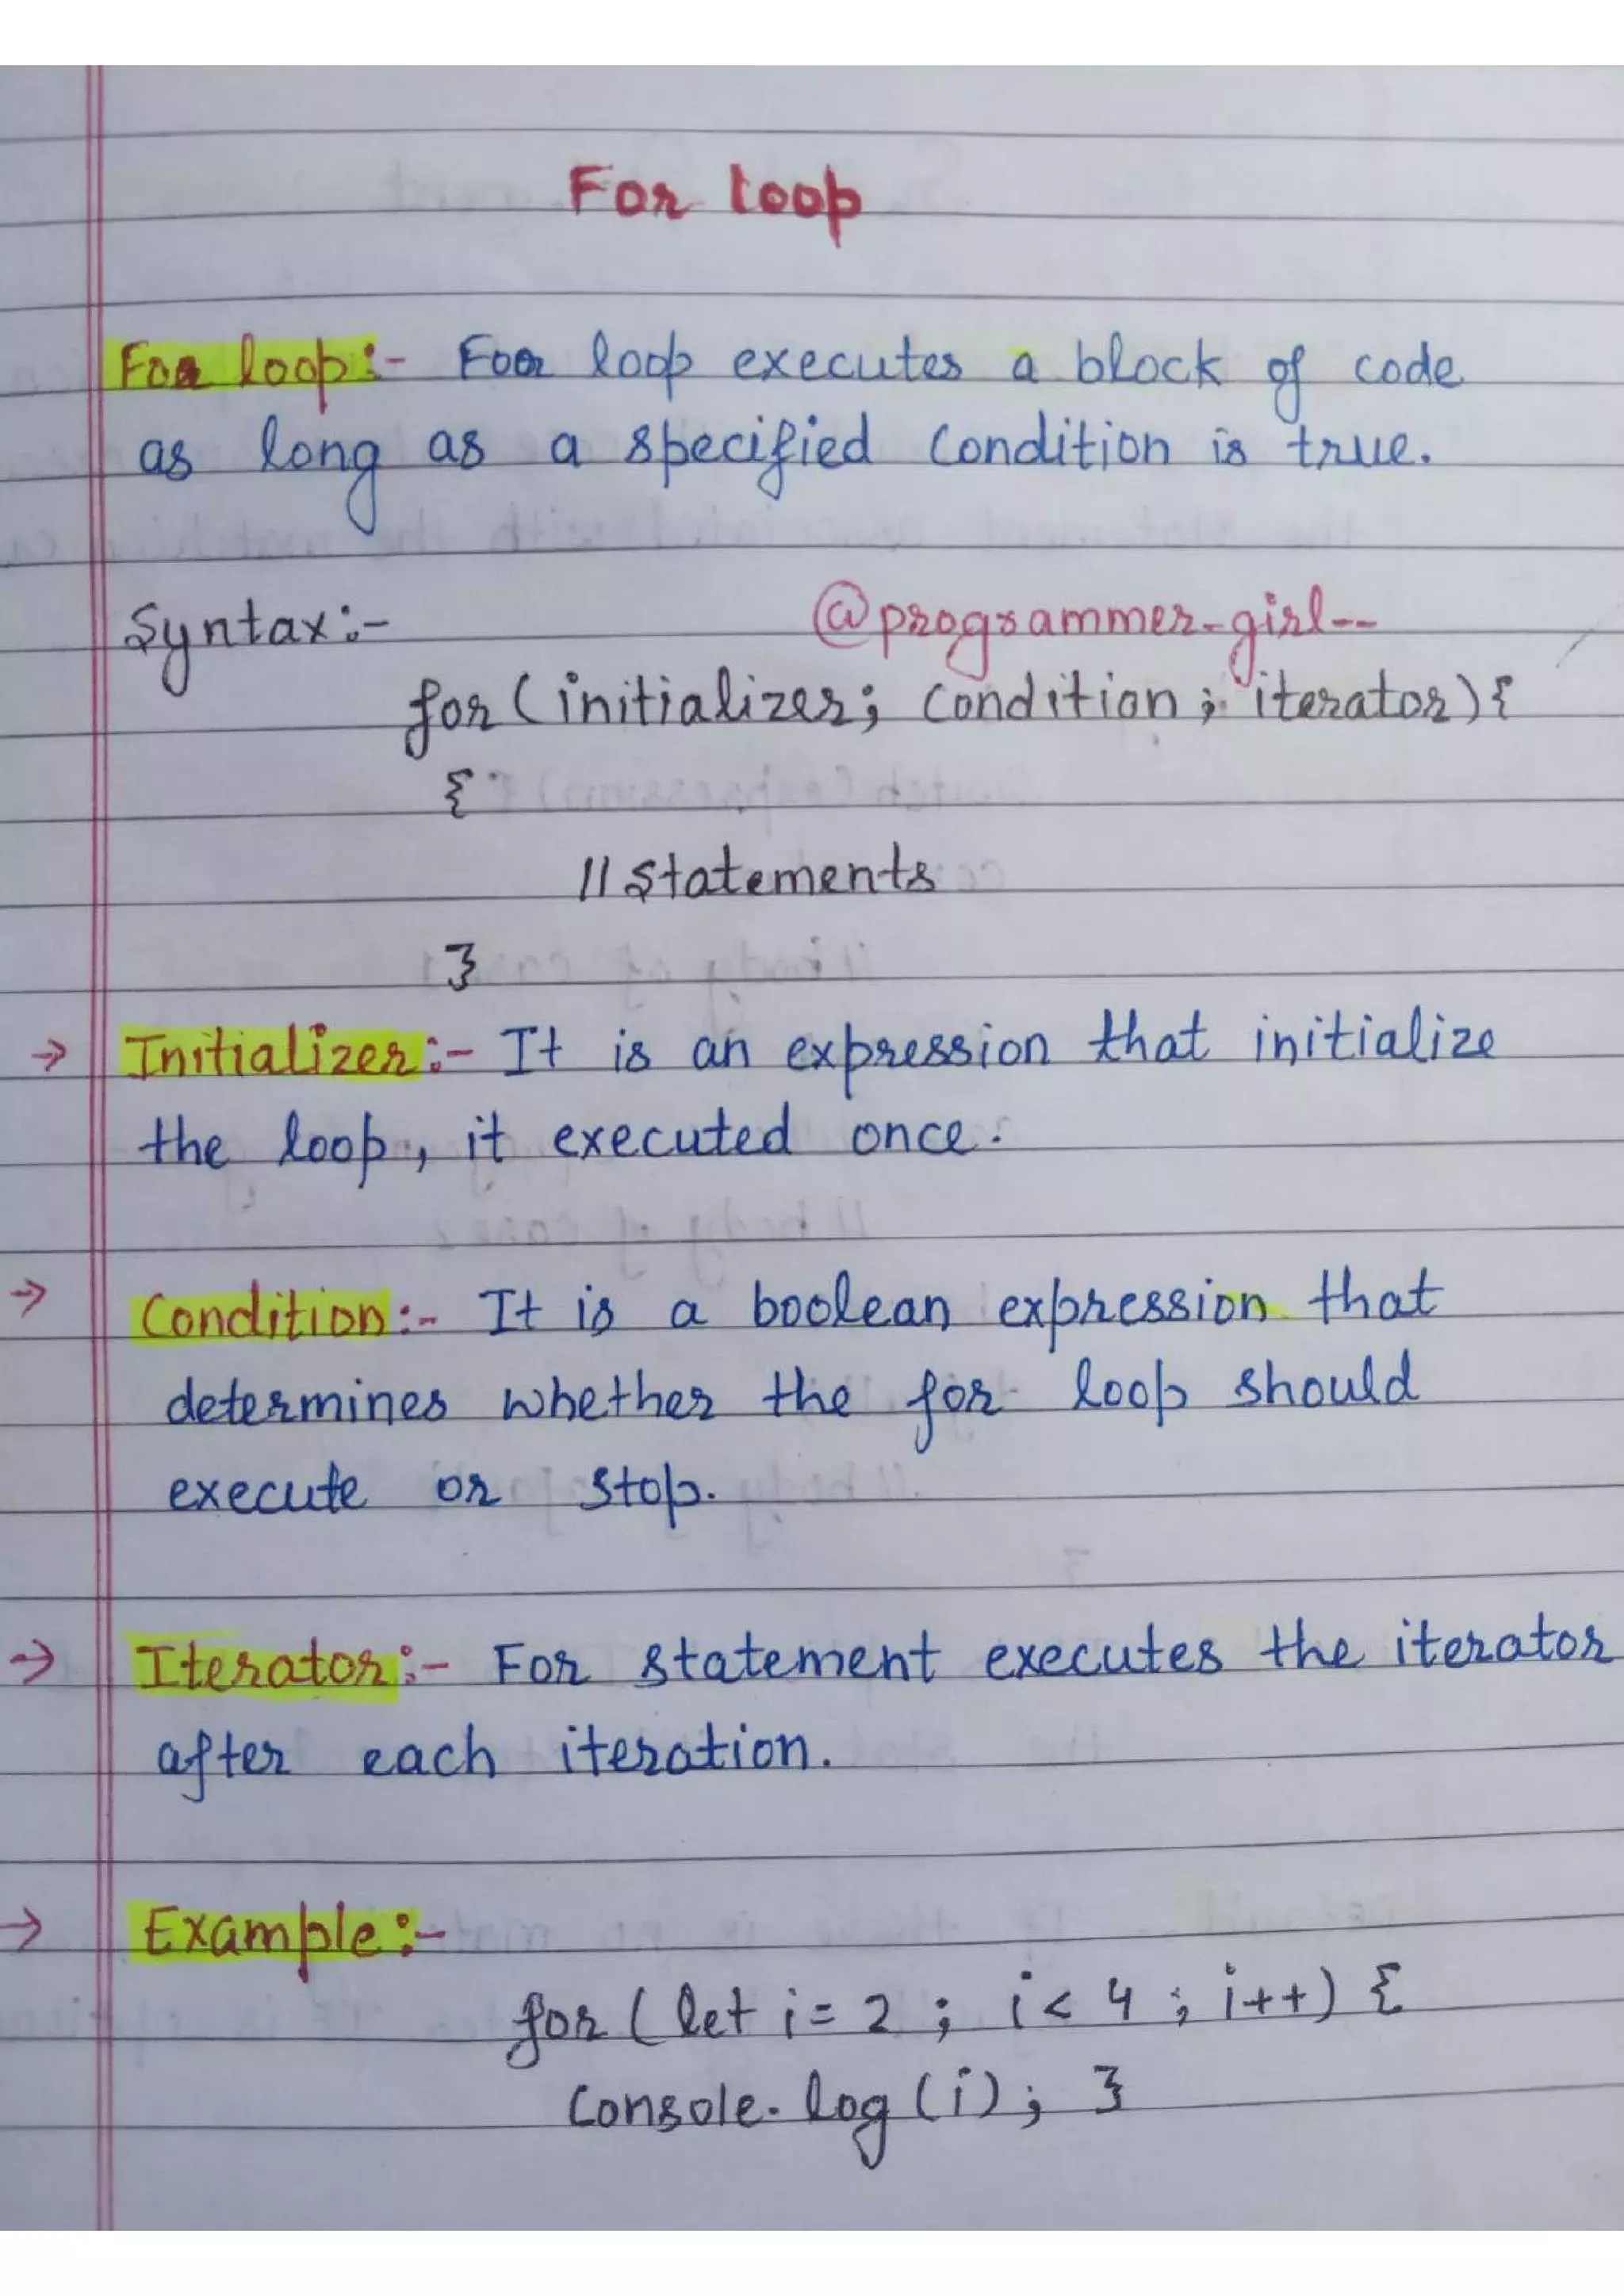 For loop
For loop:- For loop executes a block of code
as long as a specified condition is true.
Syntax:- @programmer-girl--
for (initializer; condition; iterator){
{
// statements
}
→ Initializer:- It is an expression that initialize
the loop, it executed once.
→ Condition:- It is a boolean expression that
determines whether the for loop should
execute or stop.
→ Iterator:- For statement executes the iterator
after each iteration.
→ Example:-
for ( let i = 2 ; i < 4 ; i++) {
Console.log (i); }